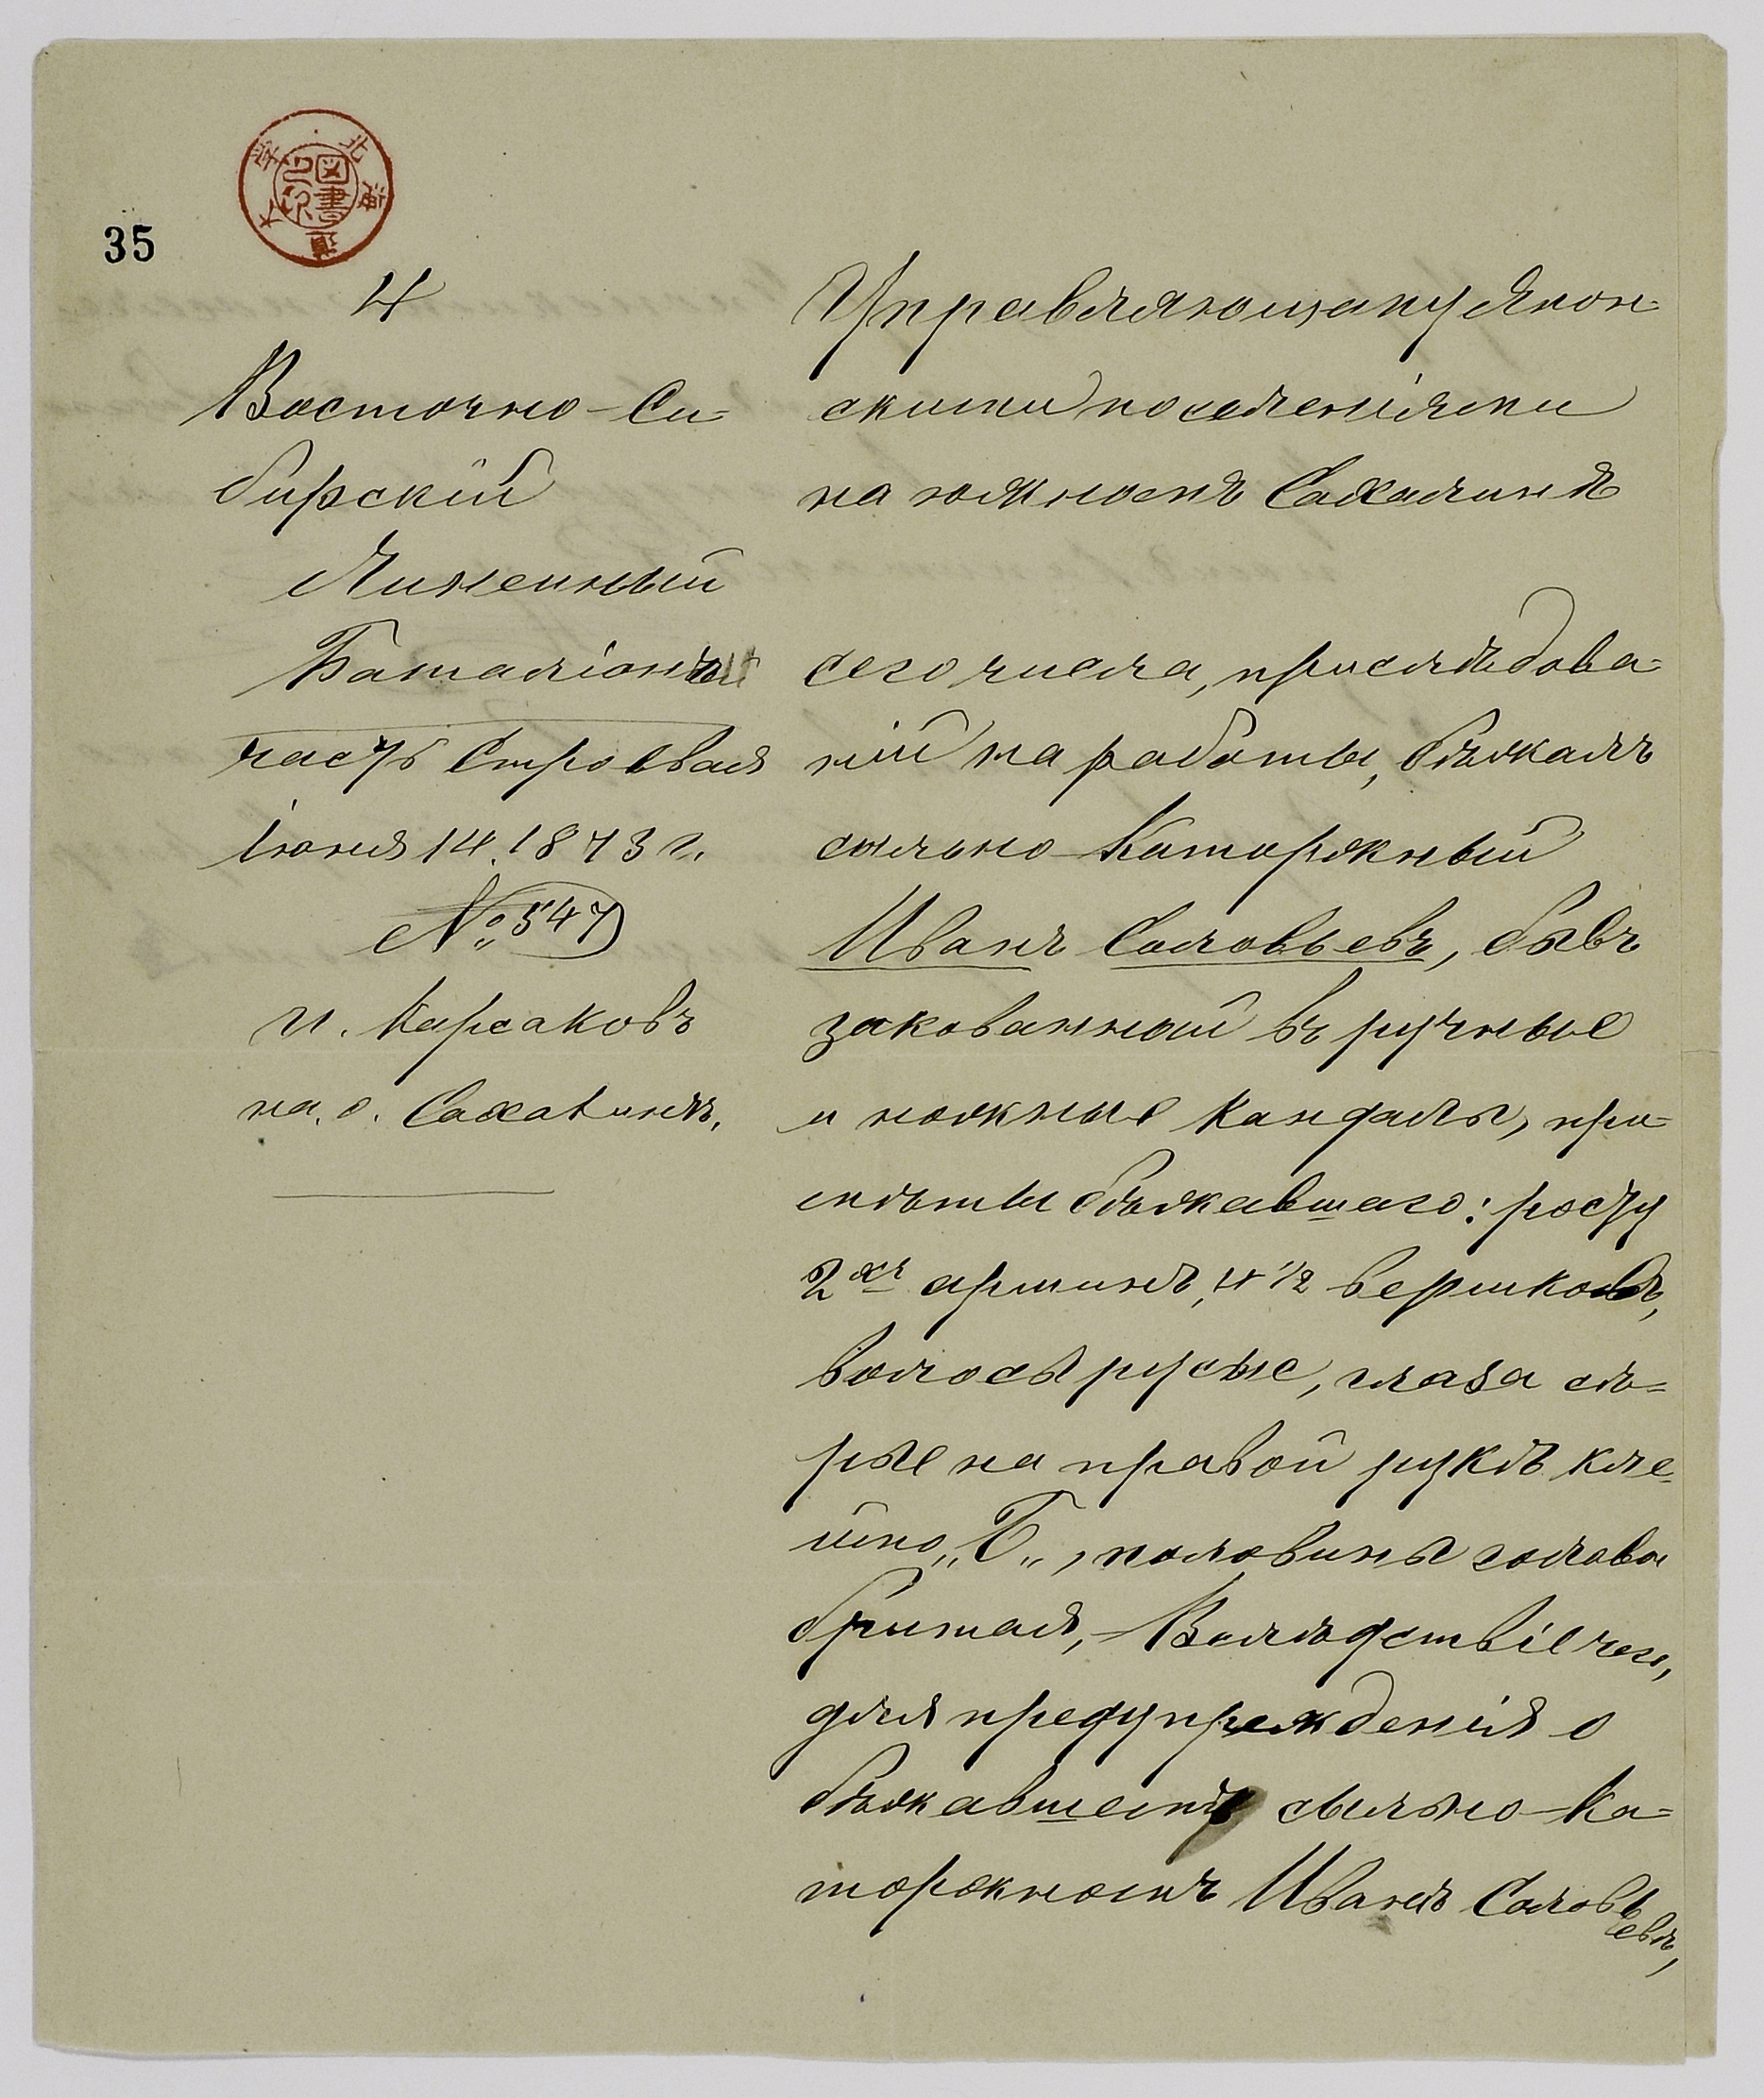 35
4
Восточно-Си=
бирскій
Линейный
Баталіонъ
часть Строевая
Іюня 14. 1873 г.
№ 547
п. Карсаковъ
на. о. Сахалинѣ.
Управляющему Япон-
скими поселеніями
на южномъ Сахалинѣ
сего числа, при слѣдова-
ніи на работы, бѣжалъ
сыльно-Каторжный
Иванъ Соловьевъ, бывъ
закованный въ ручные
и ножные Кандалы, при-
мѣты бѣжавшаго: росту
2хъ аршинъ, 4 1/2 вершковъ,
волосы русые, глаза сѣ=
рые на правой рукѣ кле-
ймо „Б„, половина головы
бритая, - Вслѣдствіе чего,
для предупрежденія о
бѣжавшемъ сыльно-Ка=
торжномъ Иванѣ Соловь
евѣ,